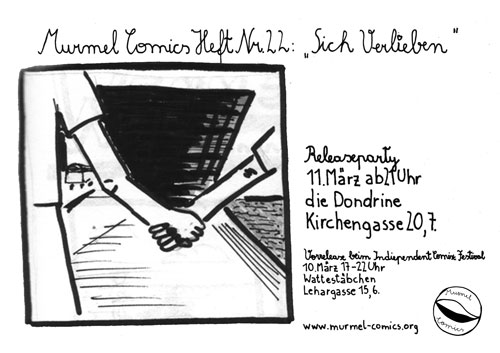 Murmel Comics Heft Nr. 22: „Sich Verlieben"
Releaseparty
11. März ab 21 Uhr
die Dondrine
Kirchengasse 20, 7.
Vorrelease beim Independent Comix Festival
10. März 17-22 Uhr
Wattestäbchen
Lehargasse 15, 6.
www.murmel-comics.org
Murmel
Comics